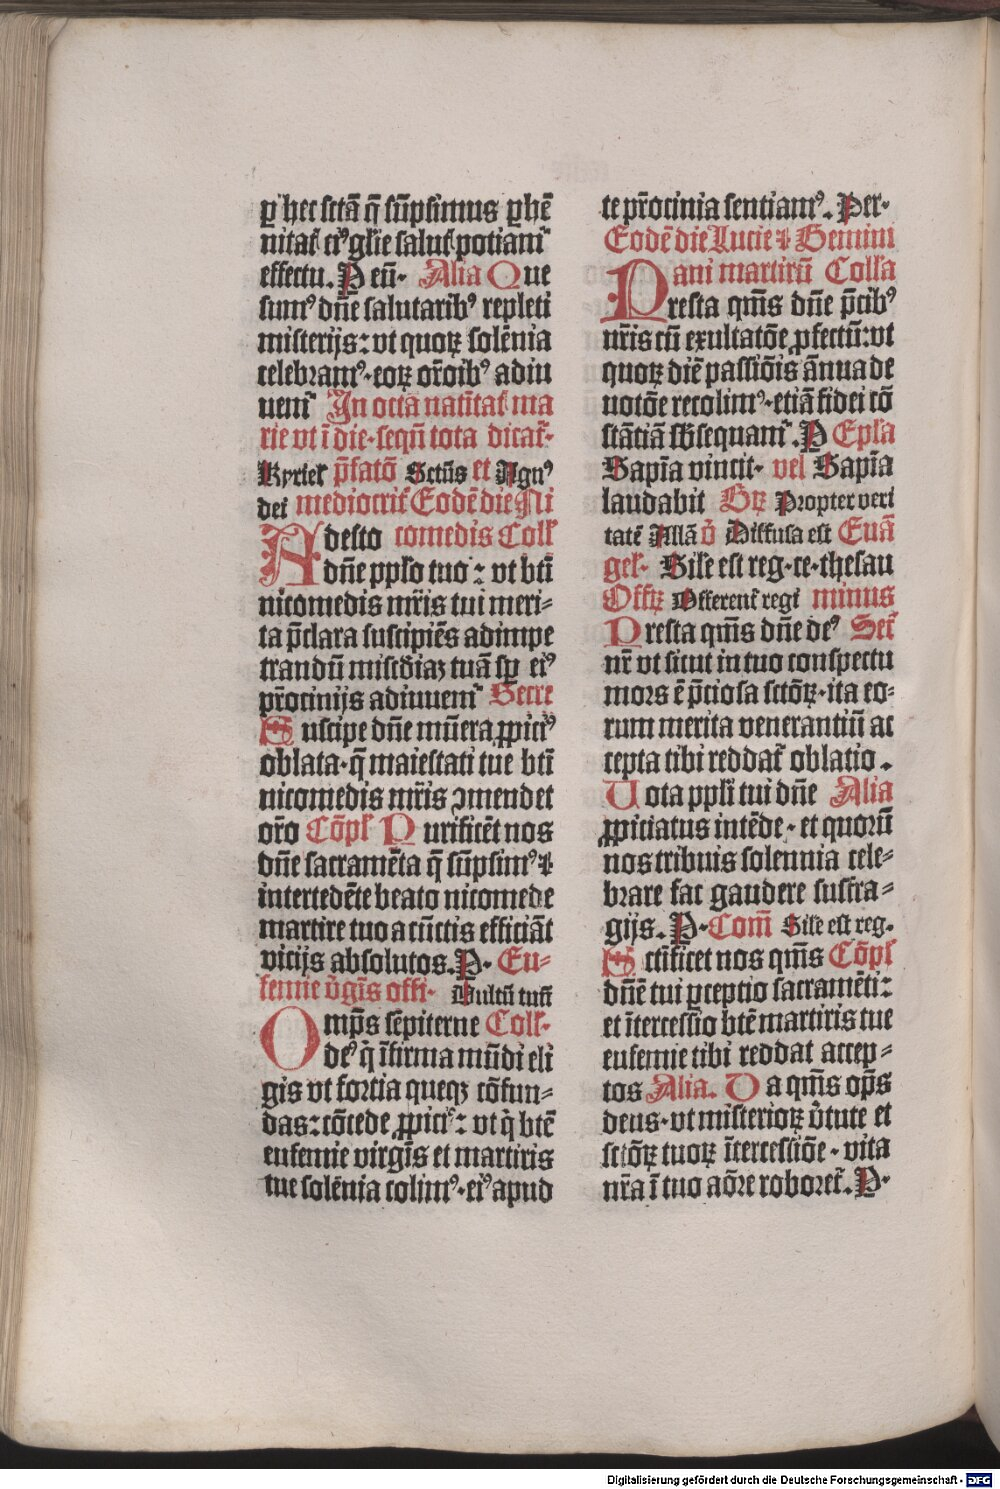 ꝑ hec sctā q̄ sūpsimus ꝑhē
nitat᷑ eiꝰ glīe salut᷑ potiam᷑
effectu. P eū· Alia Que
sumꝰ dn̄e salutaribꝰ repleti
misterijs: vt quoꝝ solēnia
celebramꝰ·eoꝝ or̄oibꝰ adiu
uem᷑ In octa natītat᷑ ma
rie vt ī die·sequn̄ tota dicat᷑·
Kyriel᷑ p̄fatō Sctūs et Agnꝰ
dei mediocrit᷑ Eodē die Ni
Adesto comedis Coll᷑
dn̄e pplo tuo: vt bt̄i
nicomedis mr̄is tui meri-
ta p̄clara suscipiēs ad impe
trandū mīscdiaꝫ tuā sꝑ eiꝰ
pr̄ocinijs adiuuem᷑ Secre
Suscipe dn̄e mūera ꝓpiciꝰ
oblata·q̄ maiestati tue bt̄i
nicomedis mr̄is ↄmendet
or̄o Cōpl᷑ Purificēt nos
dn̄e sacramēta q̄ sūpsimꝰ ⁊
intercedēte beato nicomede
martire tuo a cūctis efficiāt
vicijs absolutos. P· Eu-
femie v̄gīs offi· Vultū tuū
Omp̄s sēpiterne Coll᷑·
deꝰ q̇ īfirma mūdi eli
gis vt fortia queqꝫ cōfun-
das: cōcede ꝓpiciꝰ: vt q̇ btē
eufemie virgīs et martiris
tue solēnia colimꝰ·eiꝰ apud
te pr̄ocinia sentiamꝰ. Per·
Eodē die Lucie ⁊ Gemini
ani martirū Colla
Presta qm̄s dn̄e p̄cibꝰ
nr̄is cū exultatōe ꝓfectū: vt
quoꝝ diē passiōis ānua de
uotōe recolimꝰ·etiā fidei cō
stātiā sb̄sequam᷑. P Epl̄a
Sapīa vincit· vel Sapīa
laudabit Gr̄ꝝ Propter veri
tatē Allā v̇ Diffusa est Euā
gel᷑· Sīle est reg·ce·thesau
Offꝝ Offerent᷑ regi minus
Presta qm̄s dn̄e deꝰ Sec̄t
nr̄ vt sicut in tuo conspectu
mors ē p̄ciosa sctōꝝ·ita eo-
rum merita venerantiū ac
cepta tibi reddat᷑ oblatio.
Uota ppl̄i tui dn̄e Alia
ꝓpiciatus intēde·et quorū
nos tribuis solennia cele-
brare fac gaudere suffra-
gijs. P· Com̄ Sīle est reg·
Sctīficet nos qm̄s Cōpl᷑
dn̄e tui ꝑceptio sacramēti:
et ītercessio btē martiris tue
eufemie tibi reddat accep-
tos Alia. Va qm̄s op̄s
deus·vt misterioꝝ v̄tute et
sctōꝝ tuoꝝ ītercessiōe·vita
nr̄a ī tuo aōre roboret᷑. P·
Digitalisierung gefördert durch die Deutsche Forschungsgemeinschaft - DFG